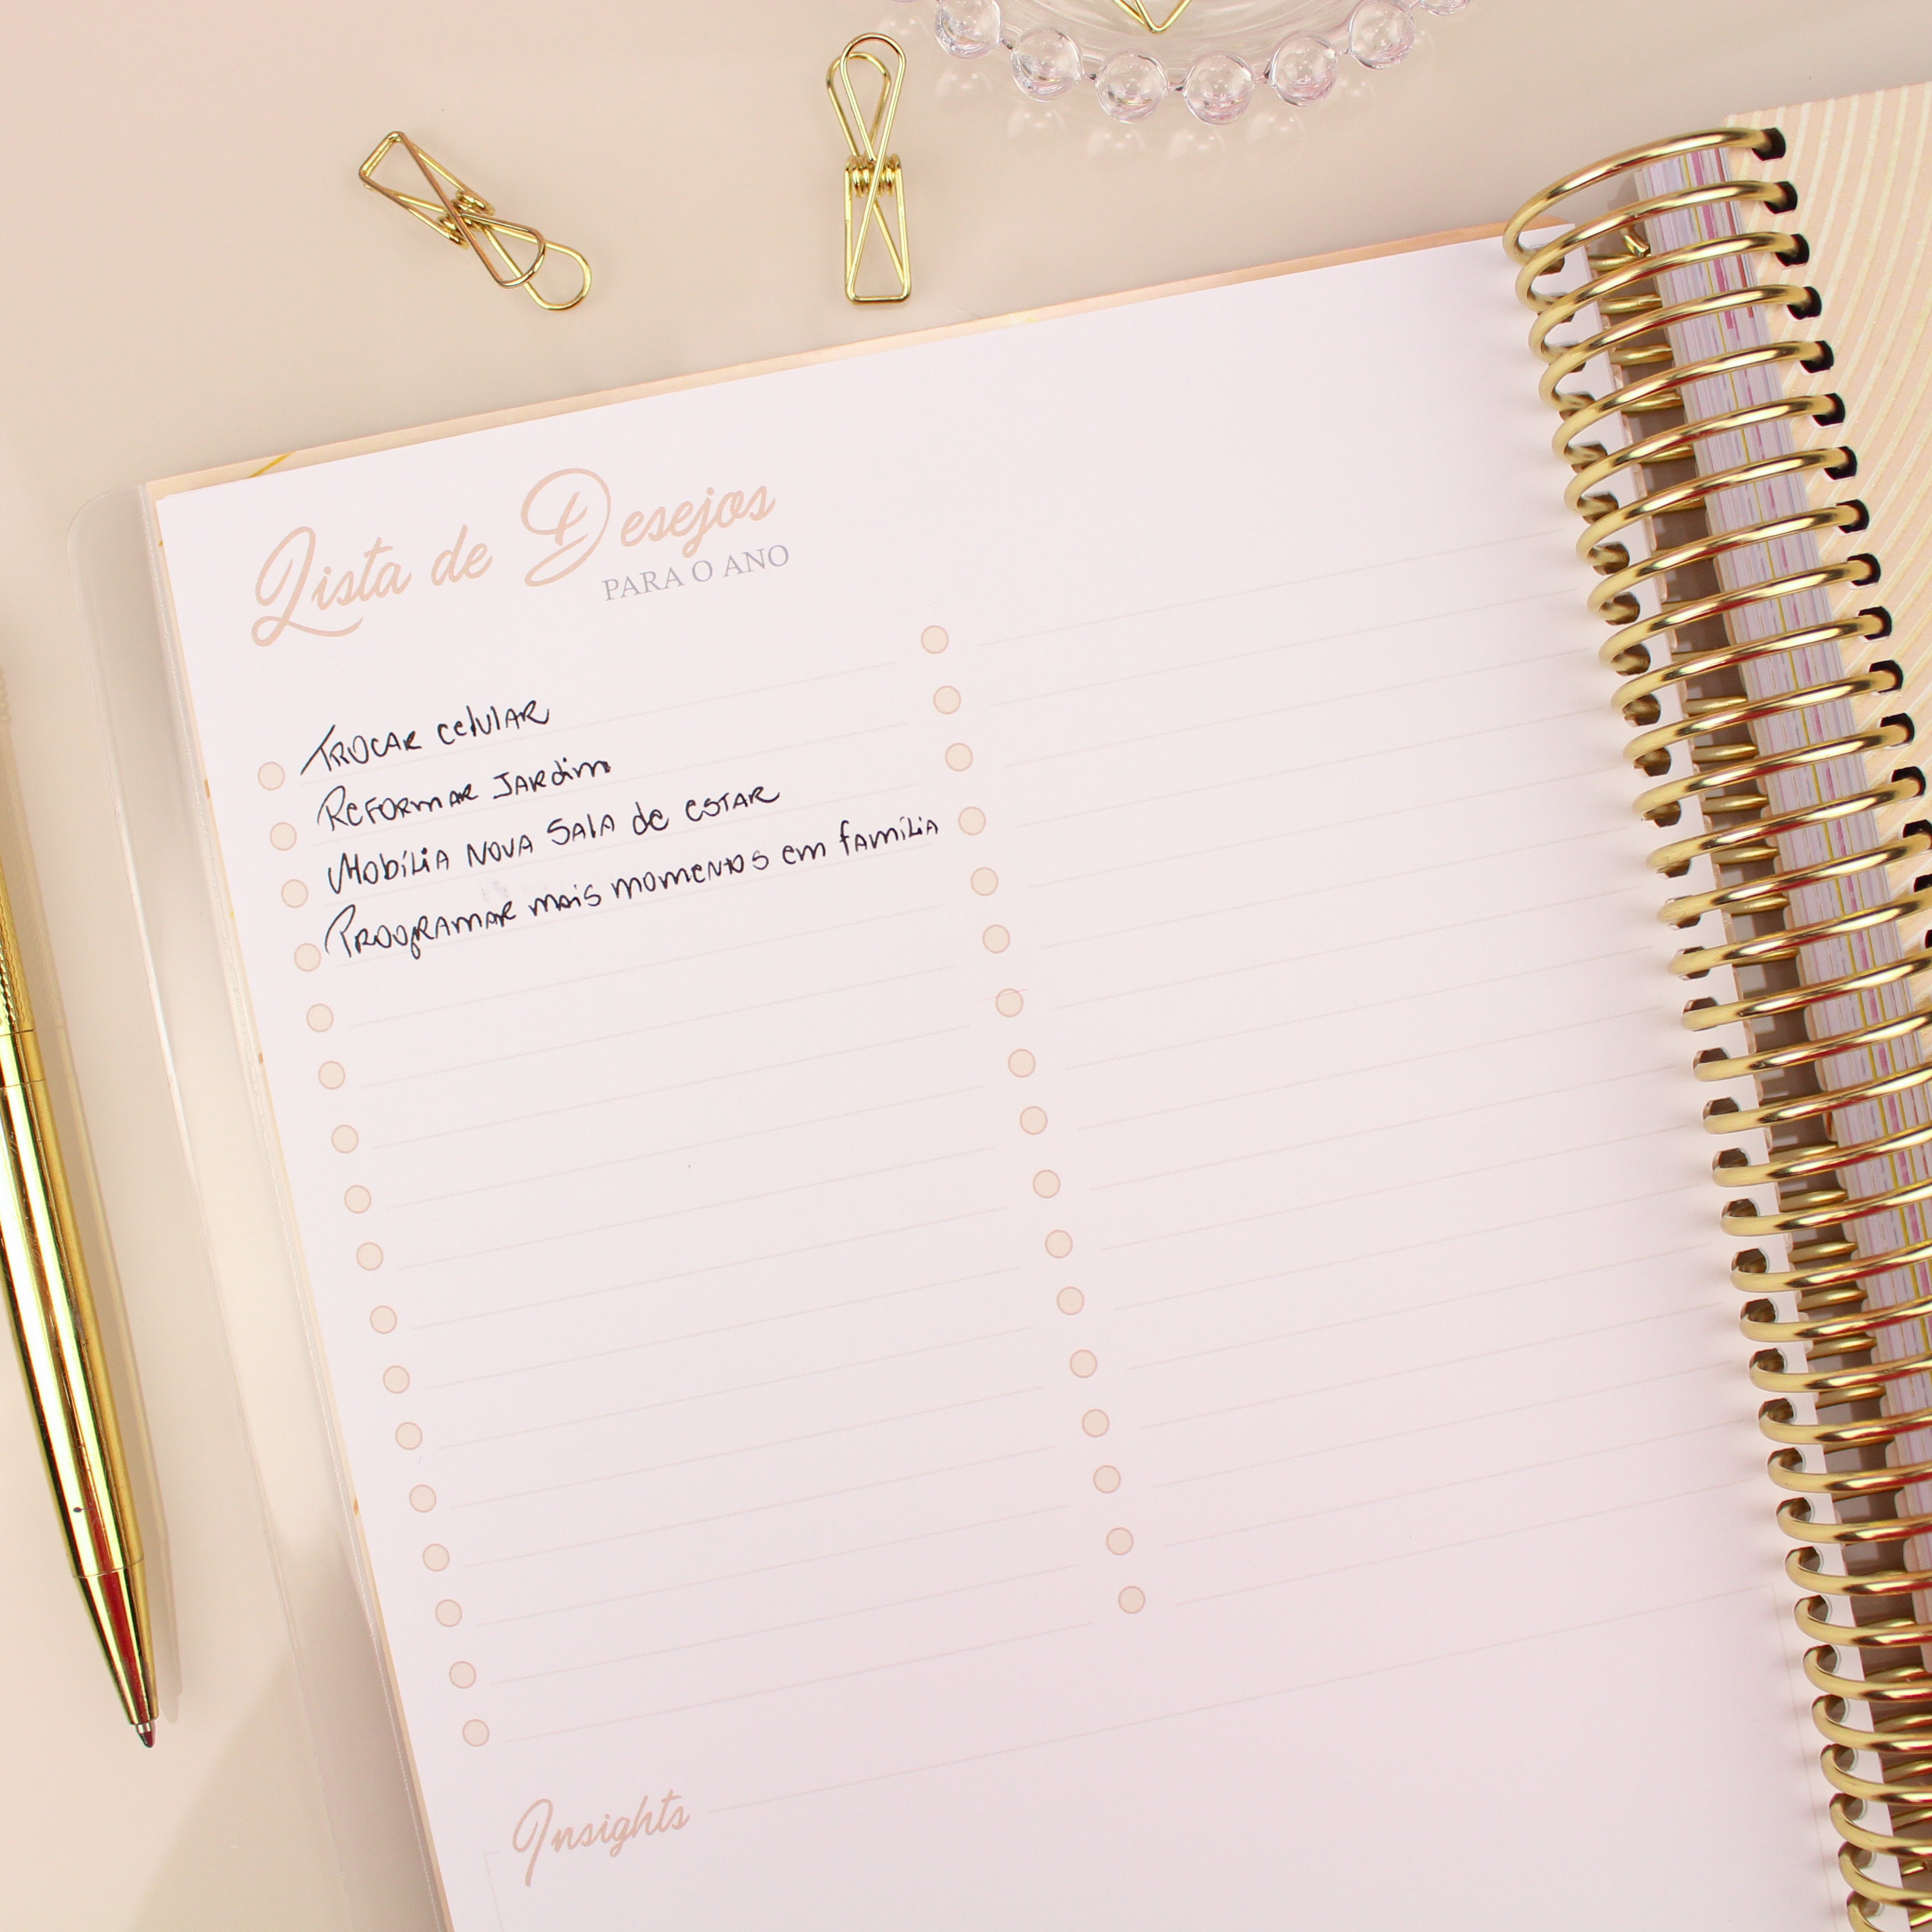 Lista de Desejos
PARA O ANO
TROCAR celular
Reformar Jardim
Mobília nova sala de estar
Programar mais momentos em família
Insights